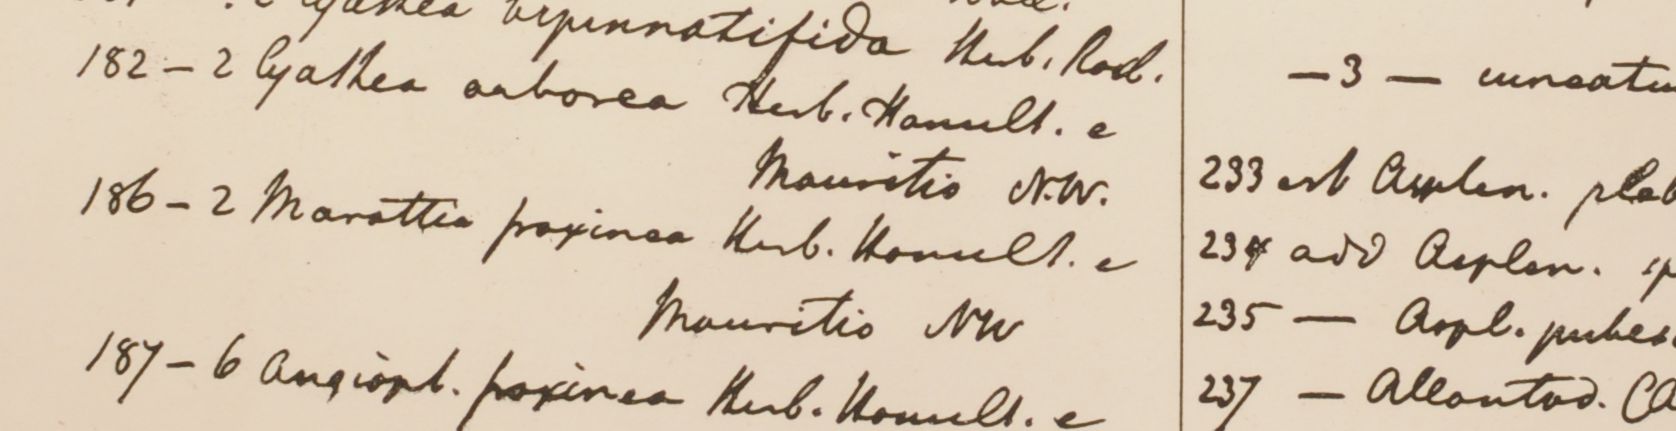 Cyathea bipinnatifida Herb. Rad.
182 – 2 Cyathea arborea Herb. Hamilt. e
Mauritio N.W.
186 – 2 Marattia fraxinea Herb. Hamilt. e
Mauritio NW
187 – 6 Angiopt. fraxinea Herb. Hamilt. e
– 3 –
233 est Asplen.
234 add Asplen.
235 — Aspl.
237 — Allantod. (A